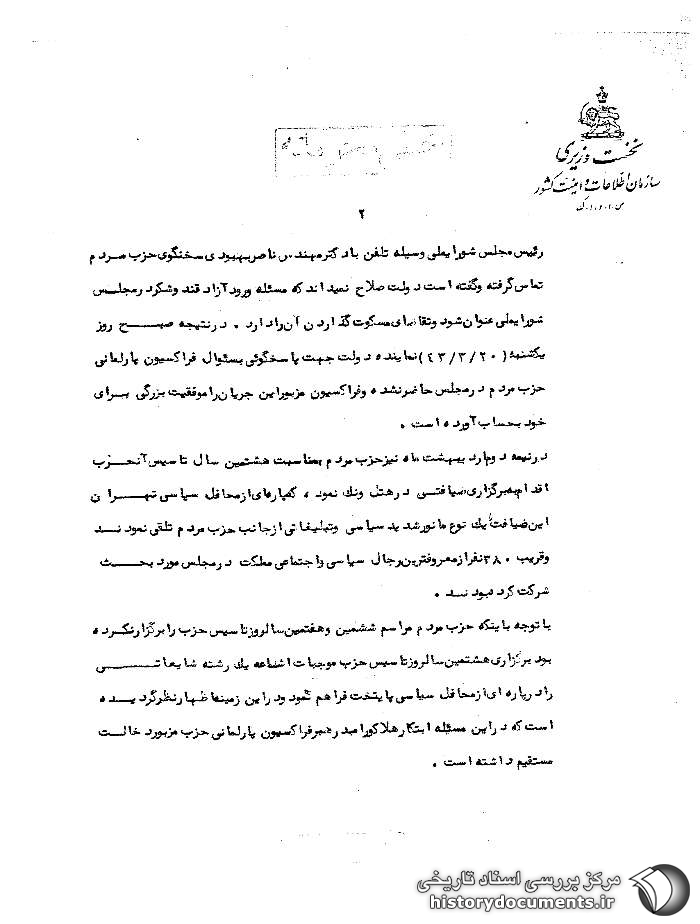 نخست وزیری
سازمان اطلاعات و امنیت کشور
س.ا.و.ا.ک
۲
رئیس مجلس شورایملی وسیله تلفن با دکتر مهندس ناصر بهبودی سخنگوی حزب مردم
تماس گرفته و گفته است دولت صلاح نمیداند که مسئله ورود آزاد قند و شکر در مجلس
شورایملی عنوان شود و تقاضای مسکوت گذاردن آن را دارد . در نتیجه صبح روز
یکشنبه (۴۳/۳/۲۰) نماینده دولت جهت پاسخگوئی بسئوال فراکسیون پارلمانی
حزب مردم در مجلس حاضر نشده و فراکسیون مزبور این جریان را موفقیت بزرگی برای
خود بحساب آورده است .
در نیمه دوم اردیبهشت ماه نیز حزب مردم بمناسبت هشتمین سال تاسیس آنحزب
اقدام به برگزاری ضیافتی در هتل ونک نمود ، که پاره‌ای از محافل سیاسی تهران
این ضیافت را یک نوع مانور شدید سیاسی و تبلیغاتی از جانب حزب مردم تلقی نمودند
و قریب ۳۸۰ نفر از معروفترین رجال سیاسی و اجتماعی مملکت در مجلس مورد بحث
شرکت کرده بودند .
با توجه باینکه حزب مردم مراسم ششمین و هفتمین سالروز تاسیس حزب را برگزار نکرده
بود برگزاری هشتمین سالروز تاسیس حزب موجبات اشاعه یک رشته شایعاتی
را در پاره‌ای از محافل سیاسی پایتخت فراهم نمود و در این زمینه اظهار نظر گردیده
است که در این مسئله ابتکار هلاکو رامبد رهبر فراکسیون پارلمانی حزب مزبور دخالت
مستقیم داشته است .
مرکز بررسی اسناد تاریخی
historydocuments.ir